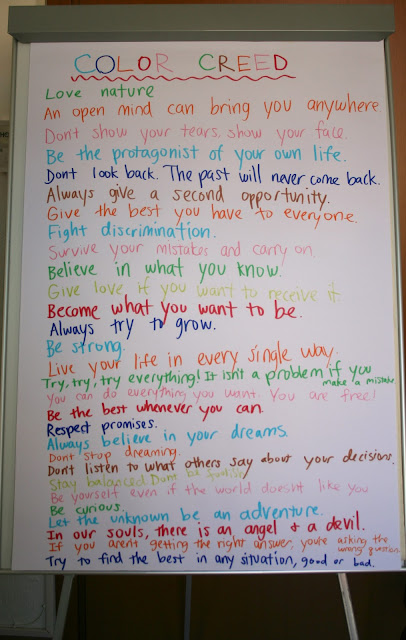 COLOR CREED
Love nature
An open mind can bring you anywhere
Dont show your tears, show your face.
Be the protagonist of your own life.
Dont look back. The past will never come back.
Always give a second opportunity.
Give the best you have to everyone.
Fight discrimination.
Survive your mistakes and carry on.
Believe in what you know.
Give love if you want to receive it.
Become what you want to be.
Always try to grow.
Be strong.
Live your life in every single way.
Try, try, try everything! It isn't a problem if you
make a mistake.
You can do everything you want. You are free!
Be the best whenever you can.
Respect promises.
Always believe in your dreams.
Dont stop dreaming.
Dont listen to what others say about your decisions.
Stay balanced. Dont be
Be yourself even if the world doesnt like you
Be curious.
Let the unknown be an adventure.
In our souls, there is an angel & a devil.
If you aren't getting the right answer, you're asking the
wrong question
Try to find the best in any situation, good or bad.